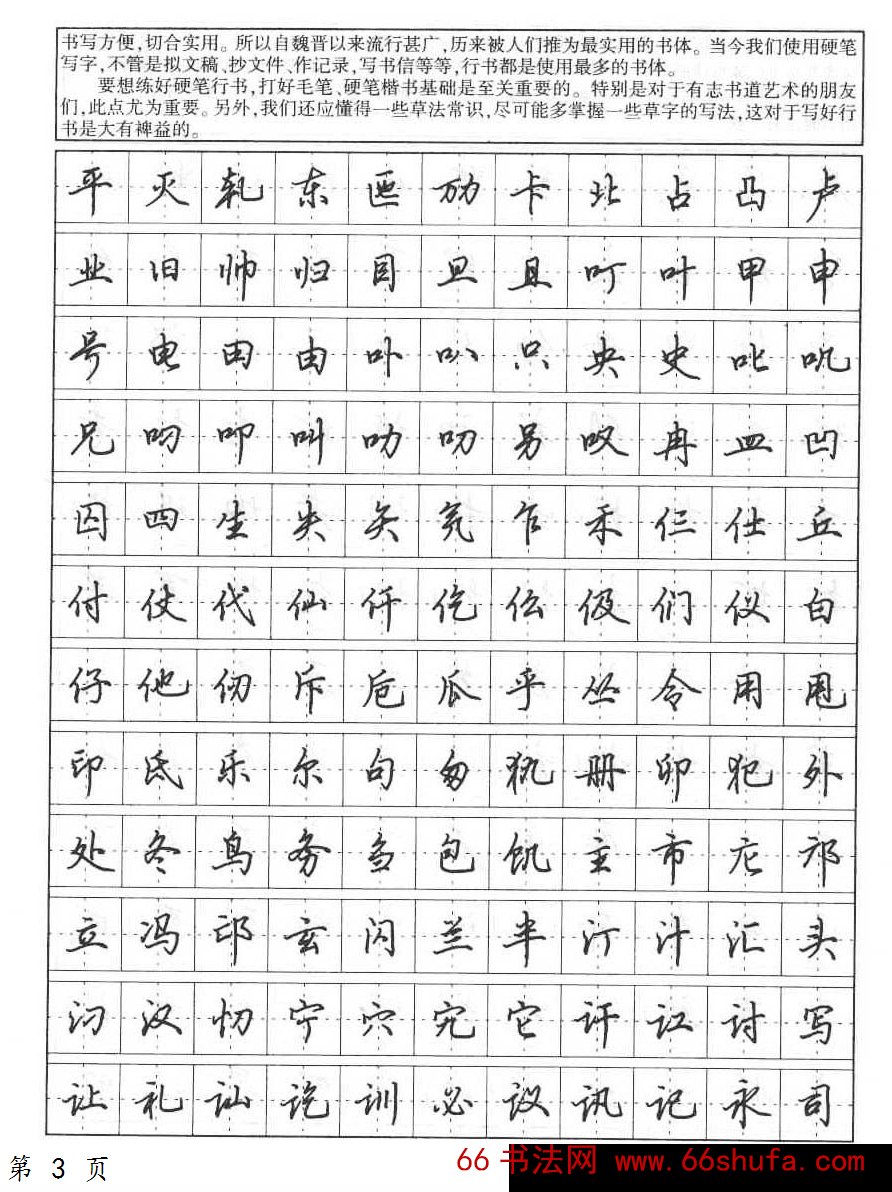 书写方便，切合实用。所以自魏晋以来流行甚广，历来被人们推为最实用的书体。当今我们使用硬笔
写字，不管是拟文稿、抄文件、作记录，写书信等等，行书都是使用最多的书体。
要想练好硬笔行书，打好毛笔、硬笔楷书基础是至关重要的。特别是对于有志书道艺术的朋友
们，此点尤为重要。另外，我们还应懂得一些草法常识，尽可能多掌握一些草字的写法，这对于写好行
书是大有裨益的。
平 灭 轧 东 匜 劢 卡 北 占 凸 卢
业 旧 帅 归 目 旦 且 叮 叶 甲 申
号 电 田 由 卟 叭 只 央 史 叱 叽
兄 叼 叩 叫 叻 叨 另 叹 冉 皿 凹
囚 四 生 失 矢 氕 乍 禾 仨 仕 丘
付 仗 代 仙 仟 仡 仫 伋 们 仪 白
仔 他 仞 斥 卮 瓜 乎 丛 令 用 甩
印 氐 乐 尔 句 匆 犰 册 卯 犯 外
处 冬 鸟 务 刍 包 饥 主 市 庀 邝
立 冯 邙 玄 闪 兰 半 汀 汁 汇 头
汈 汉 忉 宁 穴 宄 它 讦 讧 讨 写
让 礼 讪 讫 训 必 议 讯 记 永 司
第 3 页
66书法网 www.66shufa.com